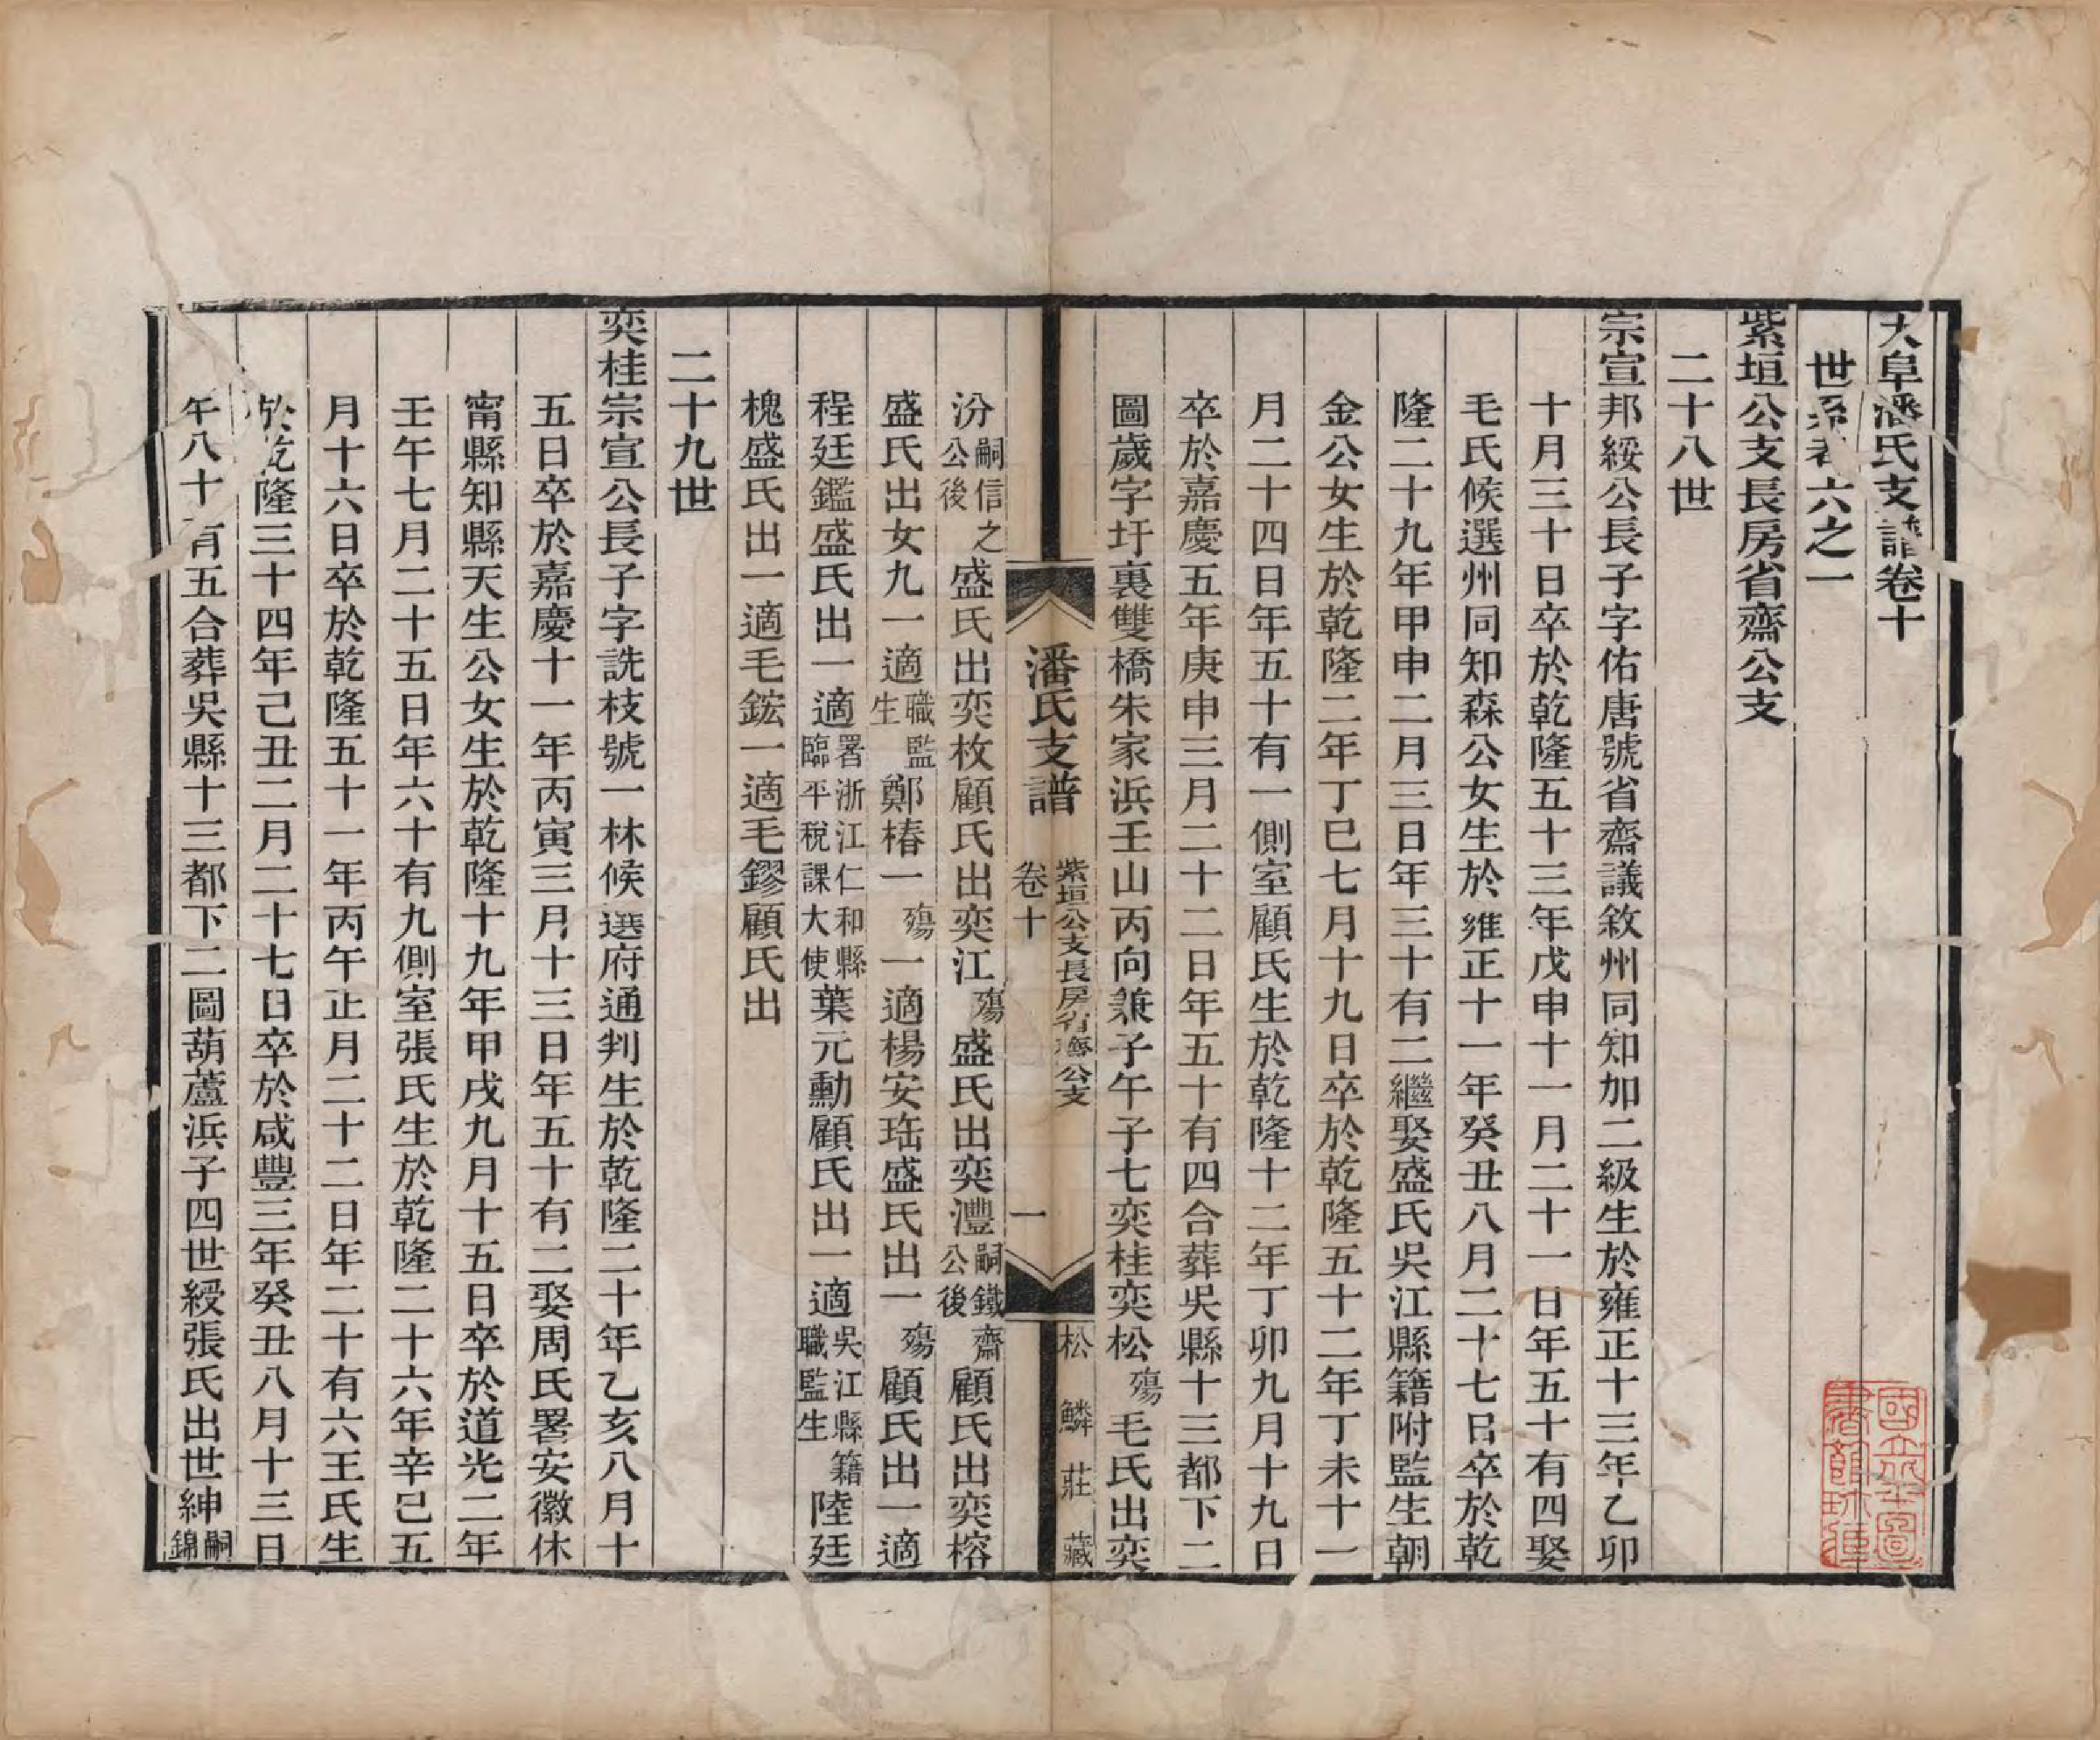 大阜潘氏支譜卷十
世系考六之一
紫垣公支長房省齋公支
二十八世
宗宣邦綏公長子字佑唐號省齋議敘州同知加二級生於雍正十三年乙卯
十月三十日卒於乾隆五十三年戊申十一月二十一日年五十有四娶
毛氏候選州同知森公女生於雍正十一年癸丑八月二十七日卒於乾
隆二十九年甲申二月三日年三十有二繼娶盛氏吳江縣籍附監生朝
金公女生於乾隆二年丁巳七月十九日卒於乾隆五十二年丁未十一
月二十四日年五十有一側室顧氏生於乾隆十二年丁卯九月十九日
卒於嘉慶五年庚申三月二十二日年五十有四合葬吳縣十三都下二
圖歲字圩裏雙橋朱家浜壬山丙向兼子午子七奕桂奕松殤毛氏出奕
潘氏支譜 卷十 紫垣公支長房省齋公支 一 松鱗莊藏
汾嗣信之公後盛氏出奕枚顧氏出奕江殤盛氏出奕灃嗣鐵齋公後顧氏出奕榕
盛氏出女九一適職監生鄭椿一殤一適楊安珤盛氏出一殤顧氏出一適
程廷鑑盛氏出一適署浙江仁和縣臨平稅課大使葉元勳顧氏出一適吳江縣籍職監生陸廷
槐盛氏出一適毛鋐一適毛鏐顧氏出
二十九世
奕桂宗宣公長子字詵枝號一林候選府通判生於乾隆二十年乙亥八月十
五日卒於嘉慶十一年丙寅三月十三日年五十有二娶周氏署安徽休
甯縣知縣天生公女生於乾隆十九年甲戌九月十五日卒於道光二年
壬午七月二十五日年六十有九側室張氏生於乾隆二十六年辛巳五
月十六日卒於乾隆五十一年丙午正月二十二日年二十有六王氏生
於乾隆三十四年己丑二月二十七日卒於咸豐三年癸丑八月十三日
年八十有五合葬吳縣十三都下二圖葫蘆浜子四世綬張氏出世紳嗣錦